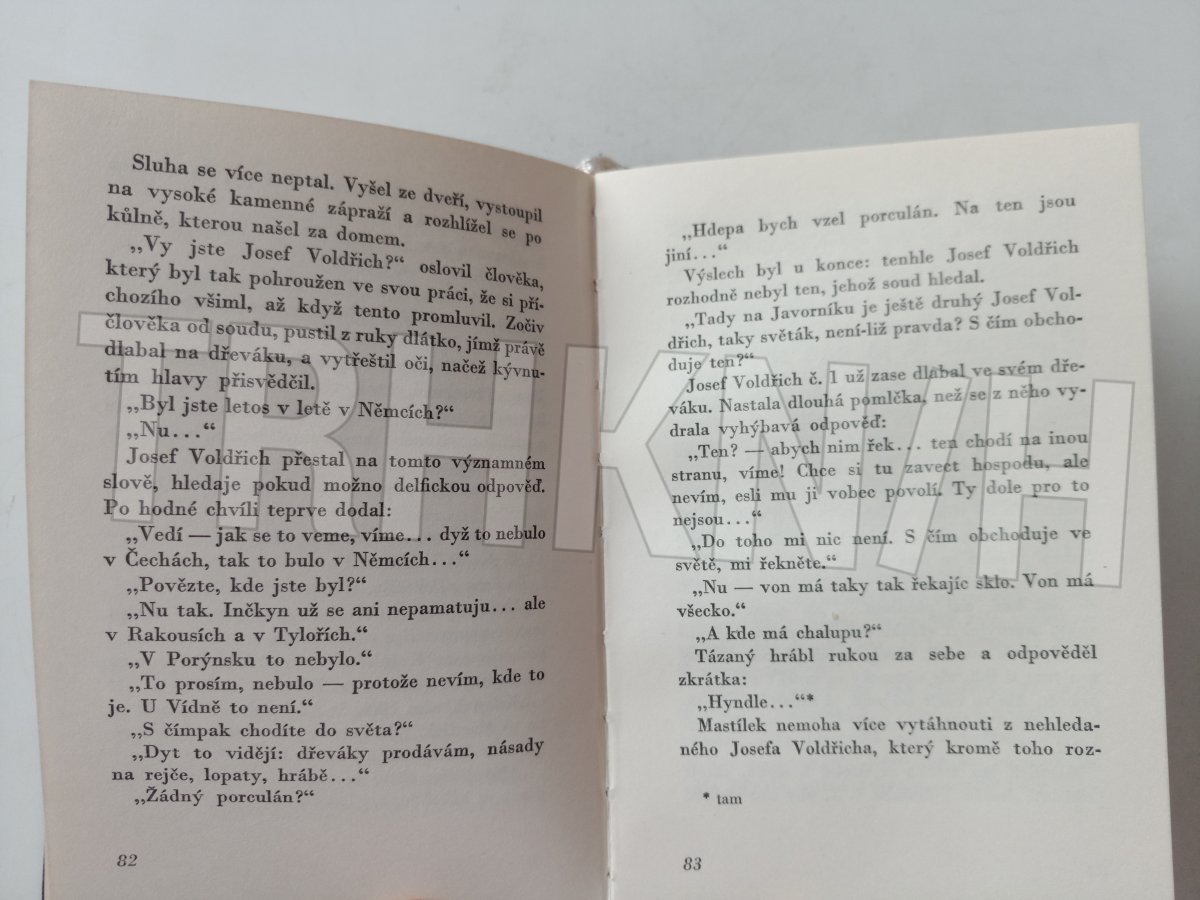 Sluha se více neptal. Vyšel ze dveří, vystoupil
na vysoké kamenné zápraží a rozhlížel se po
kůlně, kterou našel za domem.
„Vy jste Josef Voldřich?“ oslovil člověka,
který byl tak pohroužen ve svou práci, že si pří-
chozího všiml, až když tento promluvil. Zočiv
člověka od soudu, pustil z ruky dlátko, jímž právě
dlabal na dřeváku, a vytřeštil oči, načež kývnu-
tím hlavy přisvědčil.
„Byl jste letos v letě v Němcích?“
„Nu...“
Josef Voldřich přestal na tomto významném
slově, hledaje pokud možno delfickou odpověď.
Po hodné chvíli teprve dodal:
„Vedí — jak se to veme, víme... dyž to nebulo
v Čechách, tak to bulo v Němcích...“
„Povězte, kde jste byl?“
„Nu tak. Iněkyn už se ani nepamatuju... ale
v Rakousích a v Tylořích.“
„V Porýnsku to nebylo.“
„To prosím, nebulo — protože nevím, kde to
je. U Vídně to není.“
„S čímpak chodíte do světa?“
„Dyt to vidějí: dřeváky prodávám, násady
na rejče, lopaty, hrábě...“
„Žádný porculán?“
82
„Hdepa bych vzel porculán. Na ten jsou
jiní...“
Výslech byl u konce: tenhle Josef Voldřich
rozhodně nebyl ten, jehož soud hledal.
„Tady na Javorníku je ještě druhý Josef Vol-
dřich, taky světák, není-liž pravda? S čím obcho-
duje ten?“
Josef Voldřich č. 1 už zase dlabal ve svém dře-
váku. Nastala dlouhá pomlčka, než se z něho vy-
drala vyhýbavá odpověď:
„Ten? — abych nim řek... ten chodí na inou
stranu, víme! Chce si tu zavect hospodu, ale
nevím, esli mu ji vobec povolí. Ty dole pro to
nejsou...“
„Do toho mi nic není. S čím obchoduje ve
světě, mi řekněte.“
„Nu — von má taky tak řekajíc sklo. Von má
všecko.“
„A kde má chalupu?“
Tázaný hrábl rukou za sebe a odpověděl
zkrátka:
„Hyndle...“*
Mastílek nemoha více vytáhnouti z nehleda-
ného Josefa Voldřicha, který kromě toho roz-
* tam
83
TRHKNIH